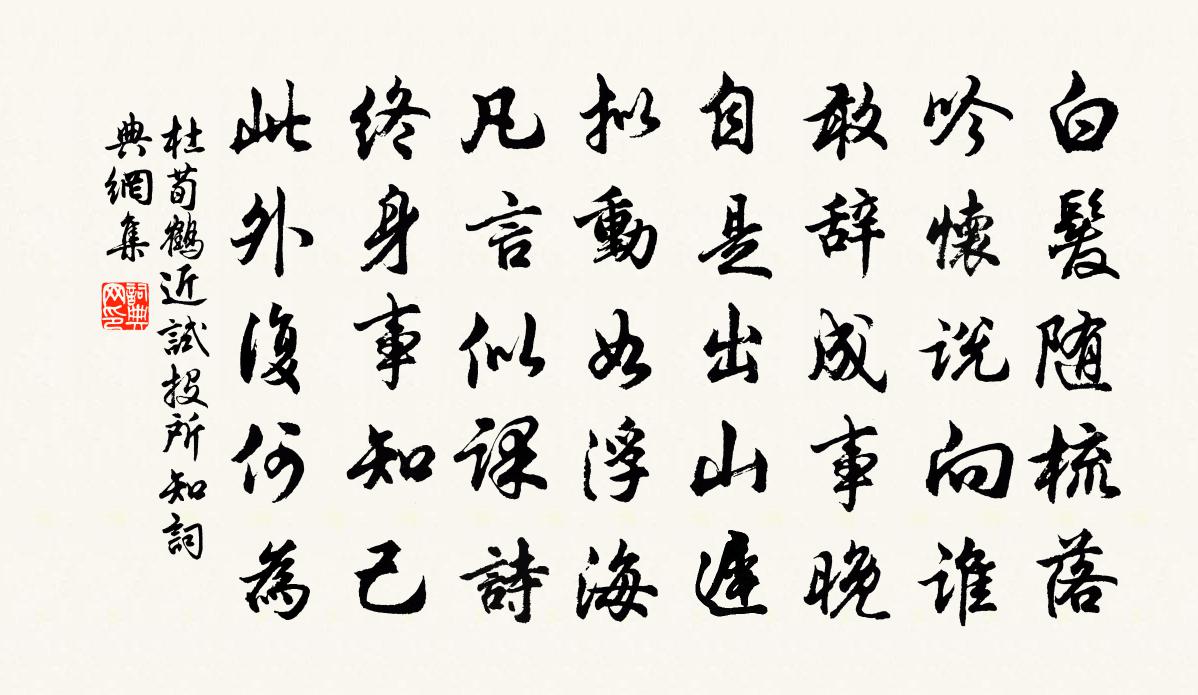 白髮随梳落
吟懷説向谁
敢辞成事晚
自是出山遲
拟動如浮海
凡言似課詩
終身事知己
此外復何為
杜荀鶴近試投所知詞
典網集
詞典网印